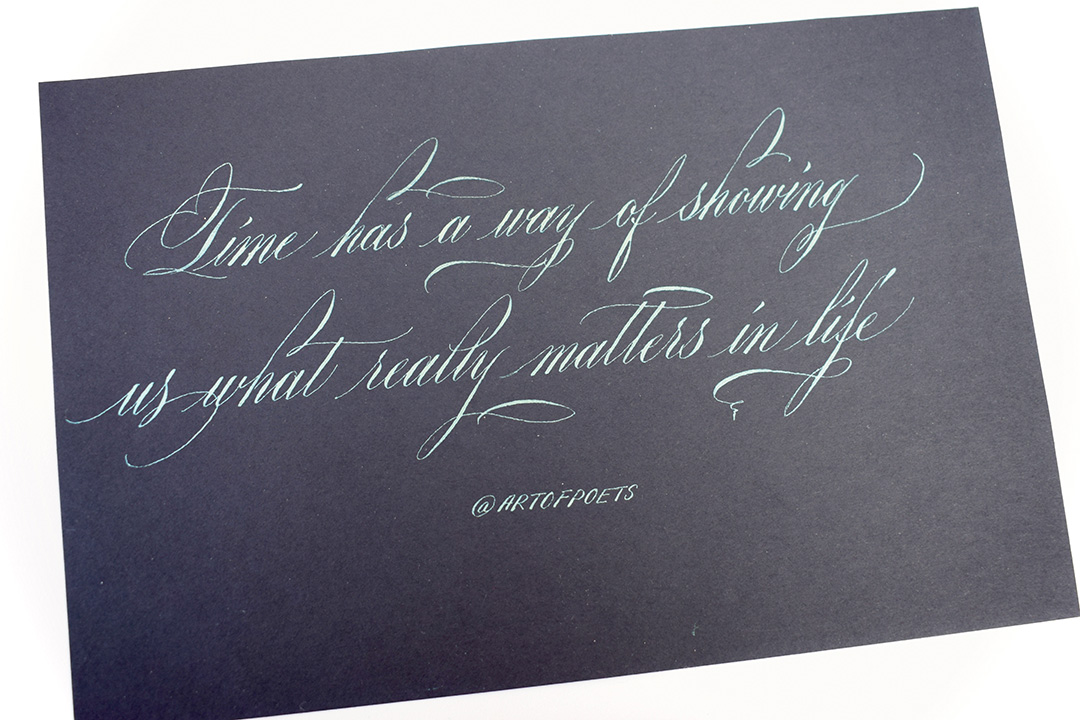 Time has a way of showing
us what really matters in life
@ARTOFPOETS